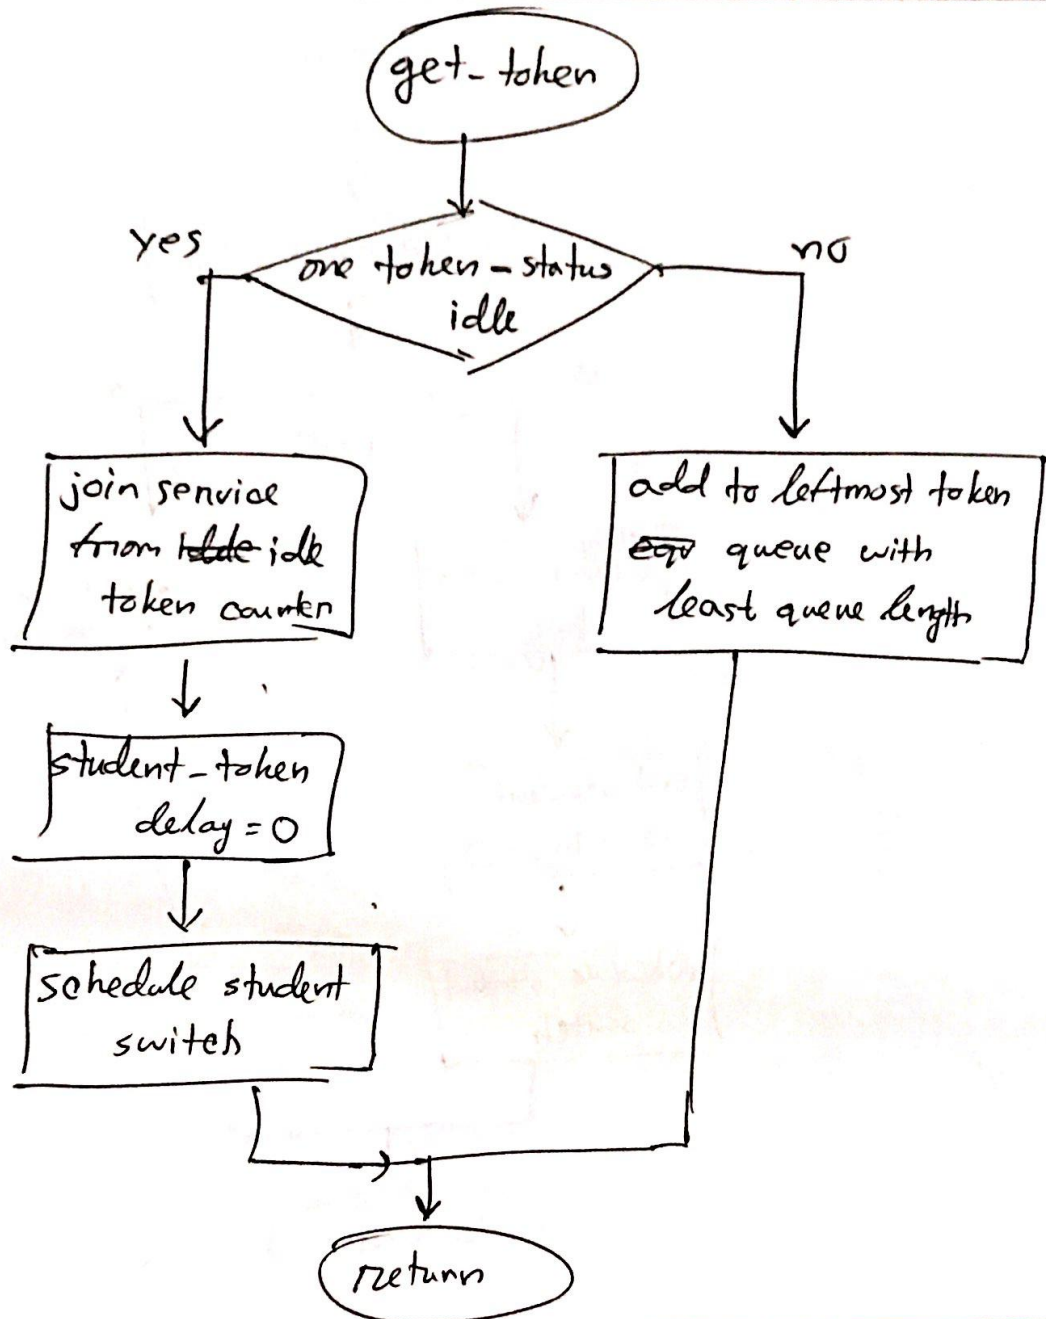 get_token
yes
no
one token-status
idle
join service
from idle
token counter
add to leftmost token
queue with
least queue length
student-token
delay = 0
schedule student
switch
return